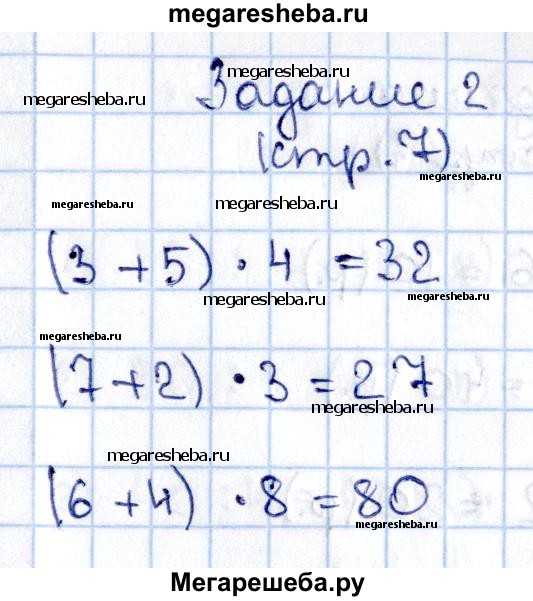 megaresheba.ru
megaresheba.ru
megaresheba.ru
Задание 2
(стр. 7)
megaresheba.ru
megaresheba.ru
megaresheba.ru
(3 + 5) · 4 = 32
megaresheba.ru
megaresheba.ru
megaresheba.ru
(7 + 2) · 3 = 27
megaresheba.ru
megaresheba.ru
(6 + 4) · 8 = 80
megaresheba.ru
Мегарешеба.ру